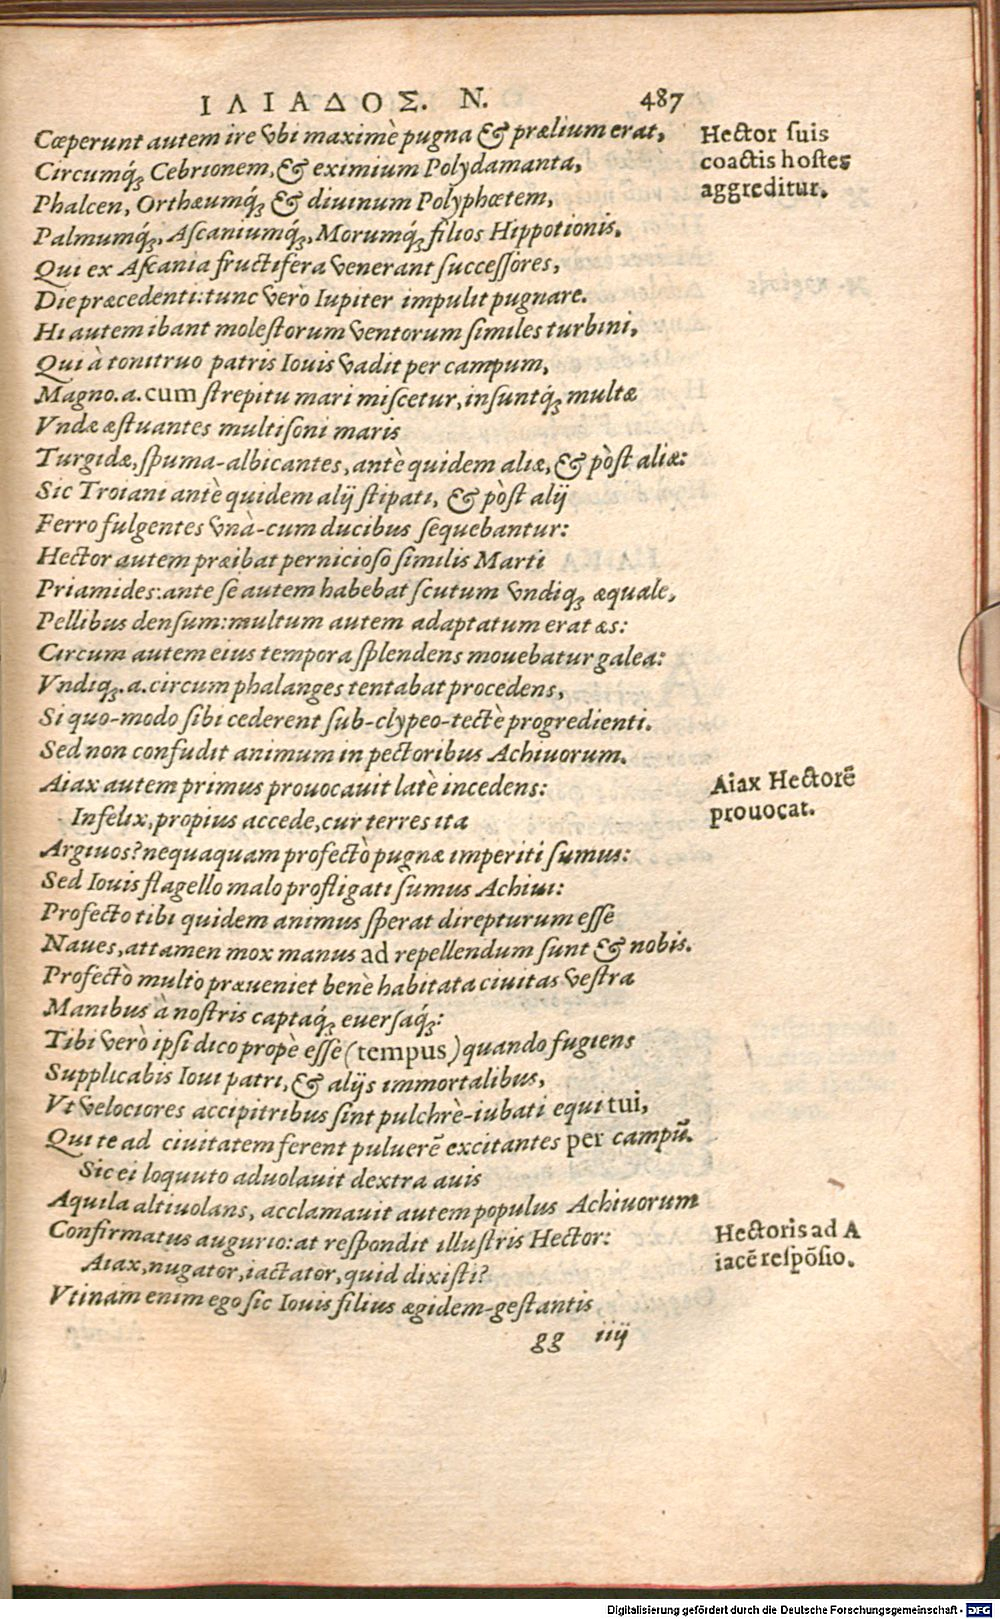 ΙΛΙΑΔΟΣ. N. 487
Cœperunt autem ire vbi maximè pugna & prælium erat,
Circumq́ꝫ Cebrionem, & eximium Polydamanta,
Phalcen, Orthæumq́ꝫ & diuinum Polyphœtem,
Palmumq́ꝫ, Aſcaniumq́ꝫ, Morumq́ꝫ filios Hippotionis.
Qui ex Aſcania fructifera venerant ſucceſſores,
Die præcedenti: tunc verò Iupiter impulit pugnare.
Hi autem ibant moleſtorum ventorum ſimiles turbini,
Qui à tonitruo patris Iouis vadit per campum,
Magno.a.cum ſtrepitu mari miſcetur, inſuntq́ꝫ multæ
Vndæ æſtuantes multiſoni maris
Turgidæ, ſpuma-albicantes, antè quidem aliæ, & pòſt aliæ:
Sic Troiani antè quidem alij ſtipati, & pòſt alij
Ferro fulgentes vnà-cum ducibus ſequebantur:
Hector autem præibat pernicioſo ſimilis Marti
Priamides: ante ſe autem habebat ſcutum vndiqꝫ æquale,
Pellibus denſum: multum autem adaptatum erat æs:
Circum autem eius tempora ſplendens mouebatur galea:
Vndiqꝫ.a.circum phalanges tentabat procedens,
Si quo-modo ſibi cederent ſub-clypeo-tectè progredienti.
Sed non confudit animum in pectoribus Achiuorum.
Aiax autem primus prouocauit latè incedens:
Infelix, propius accede, cur terres ita
Argiuos? nequaquam profectò pugnæ imperiti ſumus:
Sed Iouis flagello malo profligati ſumus Achiui:
Profecto tibi quidem animus ſperat direpturum eſſe
Naues, attamen mox manus ad repellendum ſunt & nobis.
Profectò multo præueniet benè habitata ciuitas veſtra
Manibus à noſtris captaq́ꝫ euerſaq́ꝫ:
Tibi verò ipſi dico propè eſſe (tempus) quando fugiens
Supplicabis Ioui patri, & alijs immortalibus,
Vt velociores accipitribus ſint pulchrè-iubati equi tui,
Qui te ad ciuitatem ferent puluerē excitantes per campū.
Sic ei loquuto aduolauit dextra auis
Aquila altiuolans, acclamauit autem populus Achiuorum
Confirmatus augurio: at reſpondit illuſtris Hector:
Aiax, nugator, iactator, quid dixiſti?
Vtinam enim ego ſic Iouis filius ægidem-geſtantis
gg iiij
Hector ſuis
coactis hoſtes
aggreditur.
Aiax Hectorē
prouocat.
Hectoris ad A
iacē reſpōſio.
Digitalisierung gefördert durch die Deutsche Forschungsgemeinschaft - DFG